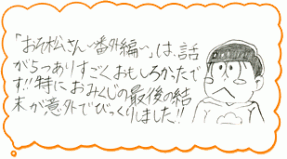 「おそ松さん〜番外編〜」は、話
がらつありすごくおもしろかたで
す!!!特におみくじの最後の結
末が意外でびっくりしました!!